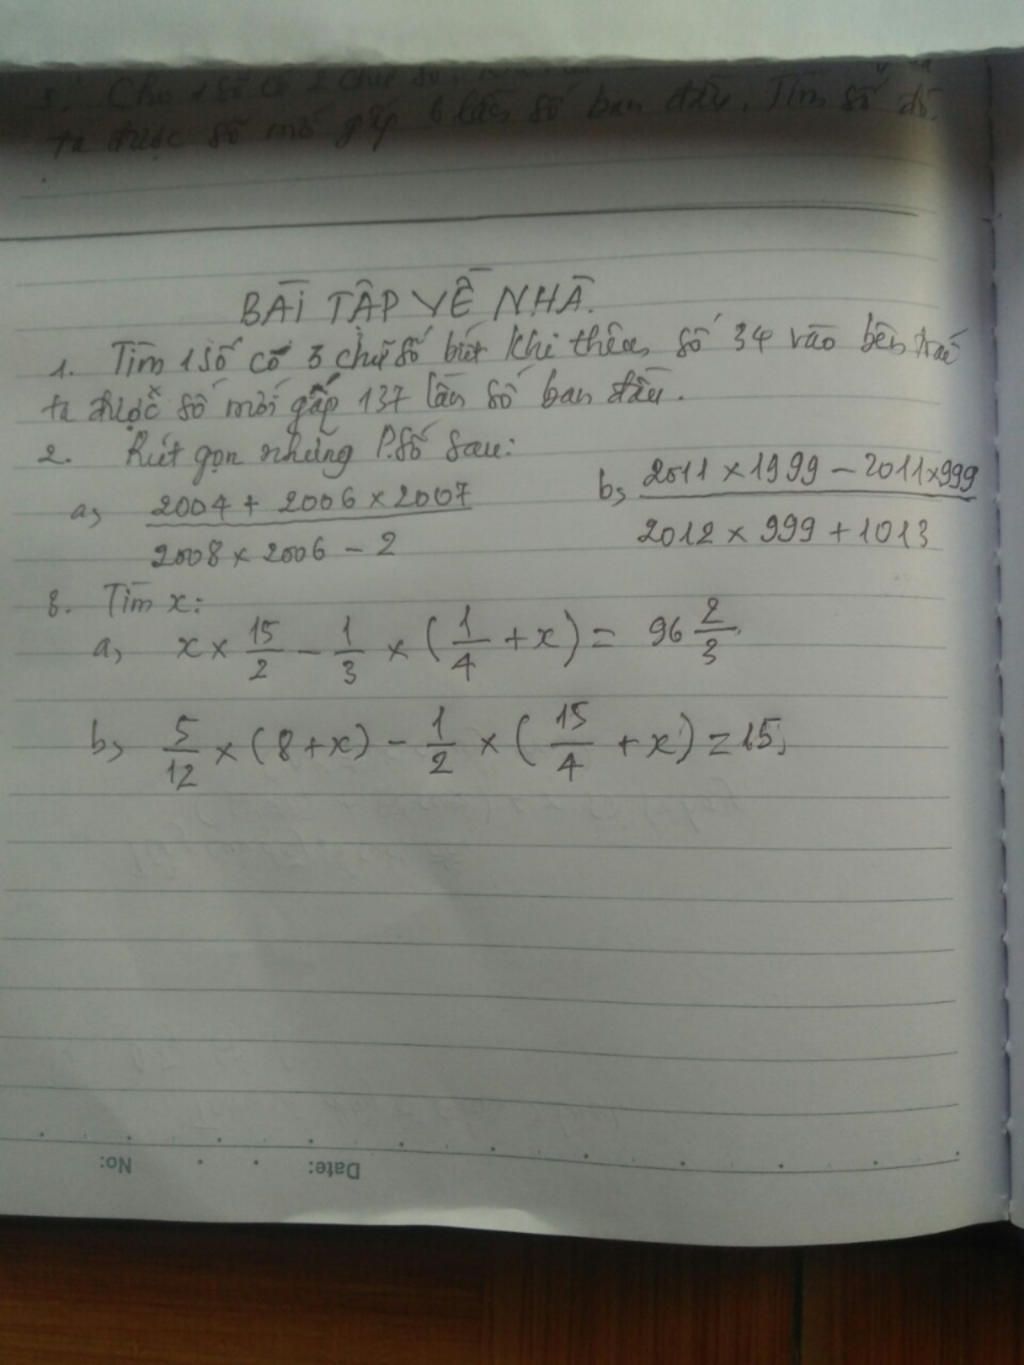 5. Cho 1 số có 2 chữ số,
ta được số mới gấp 6 lần số ban đầu. Tìm số đó.
BÀI TẬP VỀ NHÀ.
1. Tìm 1 số có 3 chữ số biết khi thêm số 34 vào bên trái
ta được số mới gấp 137 lần số ban đầu.
2. Rút gọn những P.số sau:
a, \frac{2004 + 2006 × 2007}{2008 × 2006 - 2} b, \frac{2011 × 1999 - 2011 × 999}{2012 × 999 + 1013}
3. Tìm x:
a, x × \frac{15}{2} - \frac{1}{3} × (\frac{1}{4} + x) = 96 \frac{2}{3}
b, \frac{5}{12} × (8 + x) - \frac{1}{2} × (\frac{15}{4} + x) = 15,
No: Date: